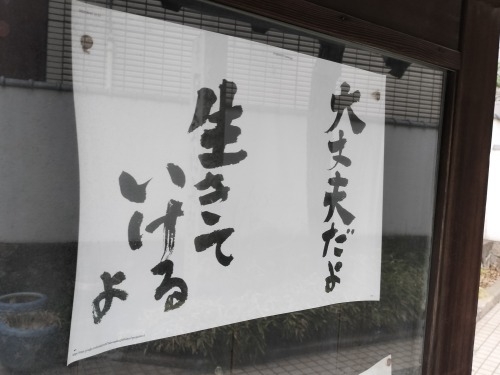 大丈夫だよ
生きて
いける
よ